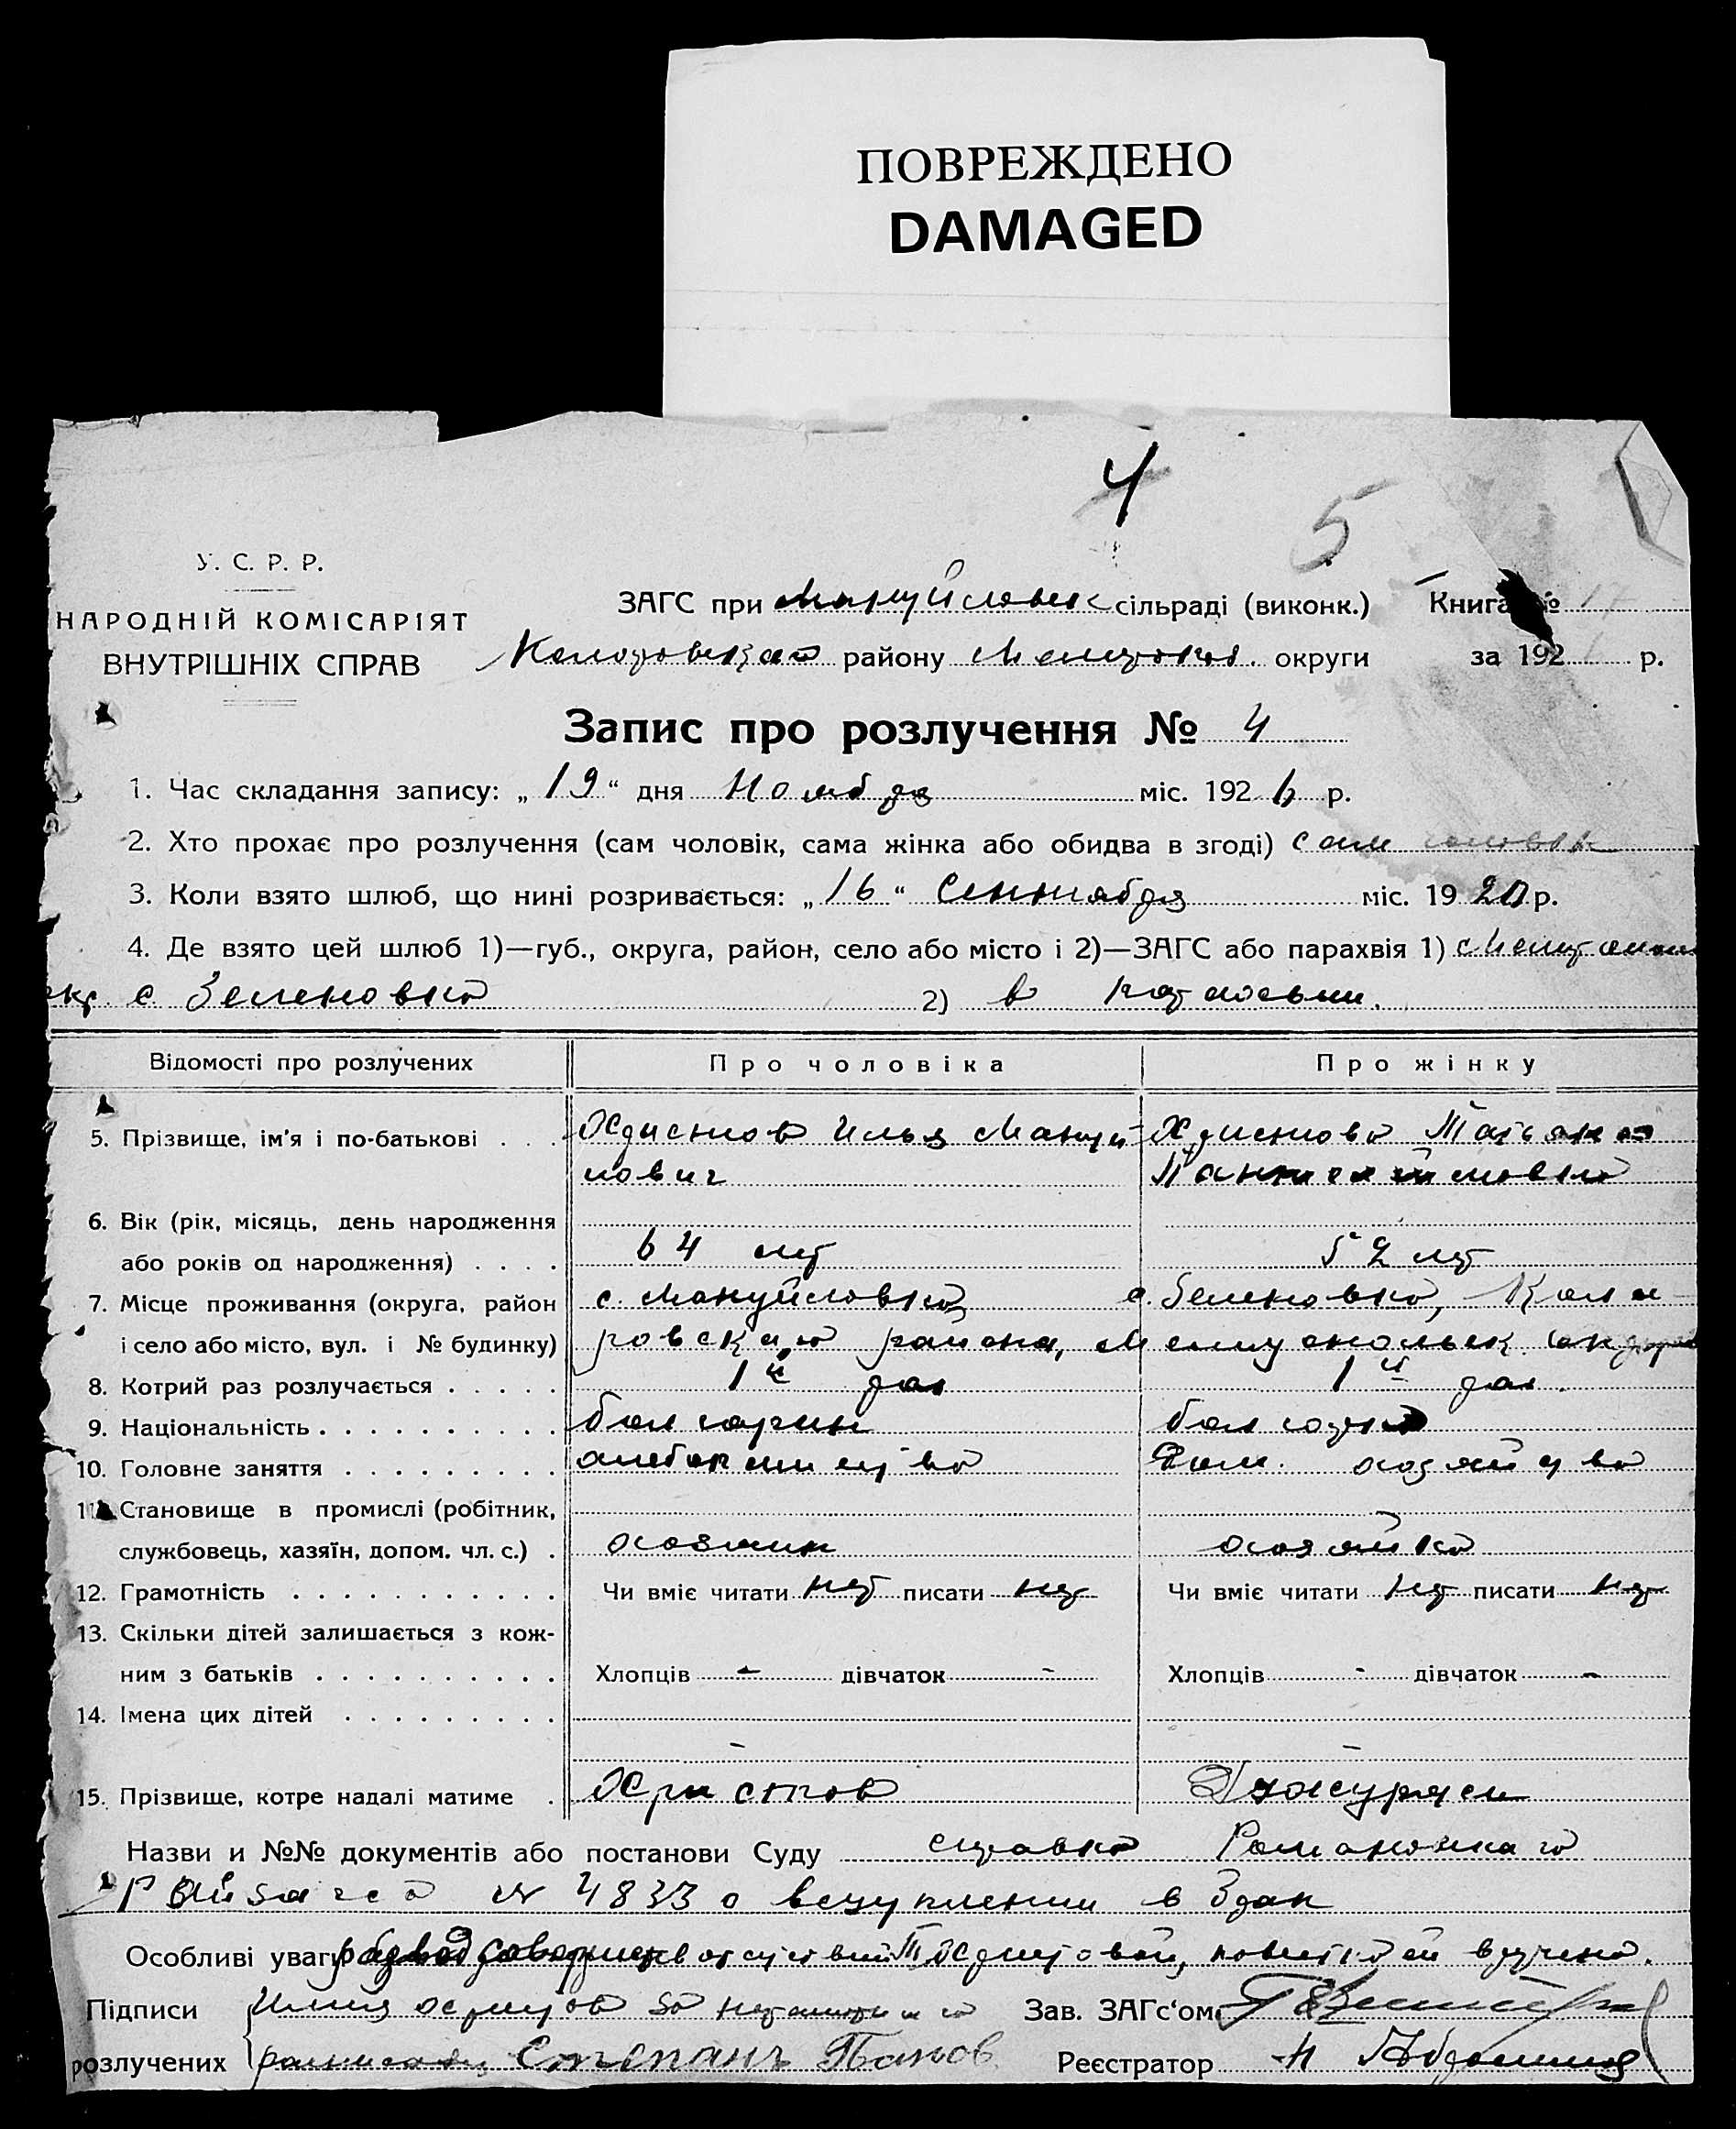 ПОВРЕЖДЕНО
DAMAGED
4
5
У. С. Р. Р.
НАРОДНІЙ КОМІСАРІЯТ
ВНУТРІШНІХ СПРАВ
ЗАГС при Мануйловск сільраді (виконк.)
Книга № 17
району округи
за 192 р.
Запис про розлучення № 4
1. Час складання запису: „19“ дня Ноября міс. 1926 р.
2. Хто прохає про розлучення (сам чоловік, сама жінка або обидва в згоді) сам
3. Коли взято шлюб, що нині розривається: „16“ Сентября міс. 1920 р.
4. Де взято цей шлюб 1)—губ., округа, район, село або місто і 2)—ЗАГС або парахвія 1)
с Зеленовка 2) в
Відомості про розлучених
Про чоловіка
Про жінку
5. Прізвище, ім'я і по-батькові . . . Христов Илья Мануй- Христова Татьяна
лович Пантелеймовна
6. Вік (рік, місяць, день народження
або років од народження) . . . . 64 лет 52 лет
7. Місце проживання (округа, район с. Мануйловка, с. Зеленовка,
і село або місто, вул. і № будинку) района, Мелитопольск. округа
8. Котрий раз розлучається . . . . . 1й раз 1й раз.
9. Національність . . . . . . . . . . болгарин болгарка
10. Головне заняття . . . . . . . . . хлебопашество Дом. хозяйство
11. Становище в промислі (робітник,
службовець, хазяїн, допом. чл. с.) . хозяин хозяйка
12. Грамотність . . . . . . . . . . . Чи вміє читати нет писати нет Чи вміє читати нет писати нет
13. Скільки дітей залишається з кож-
ним з батьків . . . . . . . . . . Хлопців - дівчаток - Хлопців - дівчаток -
14. Імена цих дітей . . . . . . . . .
- -
15. Прізвище, котре надалі матиме . Христов
Назви и №№ документів або постанови Суду справка
№ 4833 о вступлении в брак
Особливі уваги развод совершен в отсутствии Т. Христовой, повестка ей вручена.
Підписи Илия Христов за неграмотного
розлучених расписался Степанъ Панов
Зав. ЗАГс'ом
Реєстратор